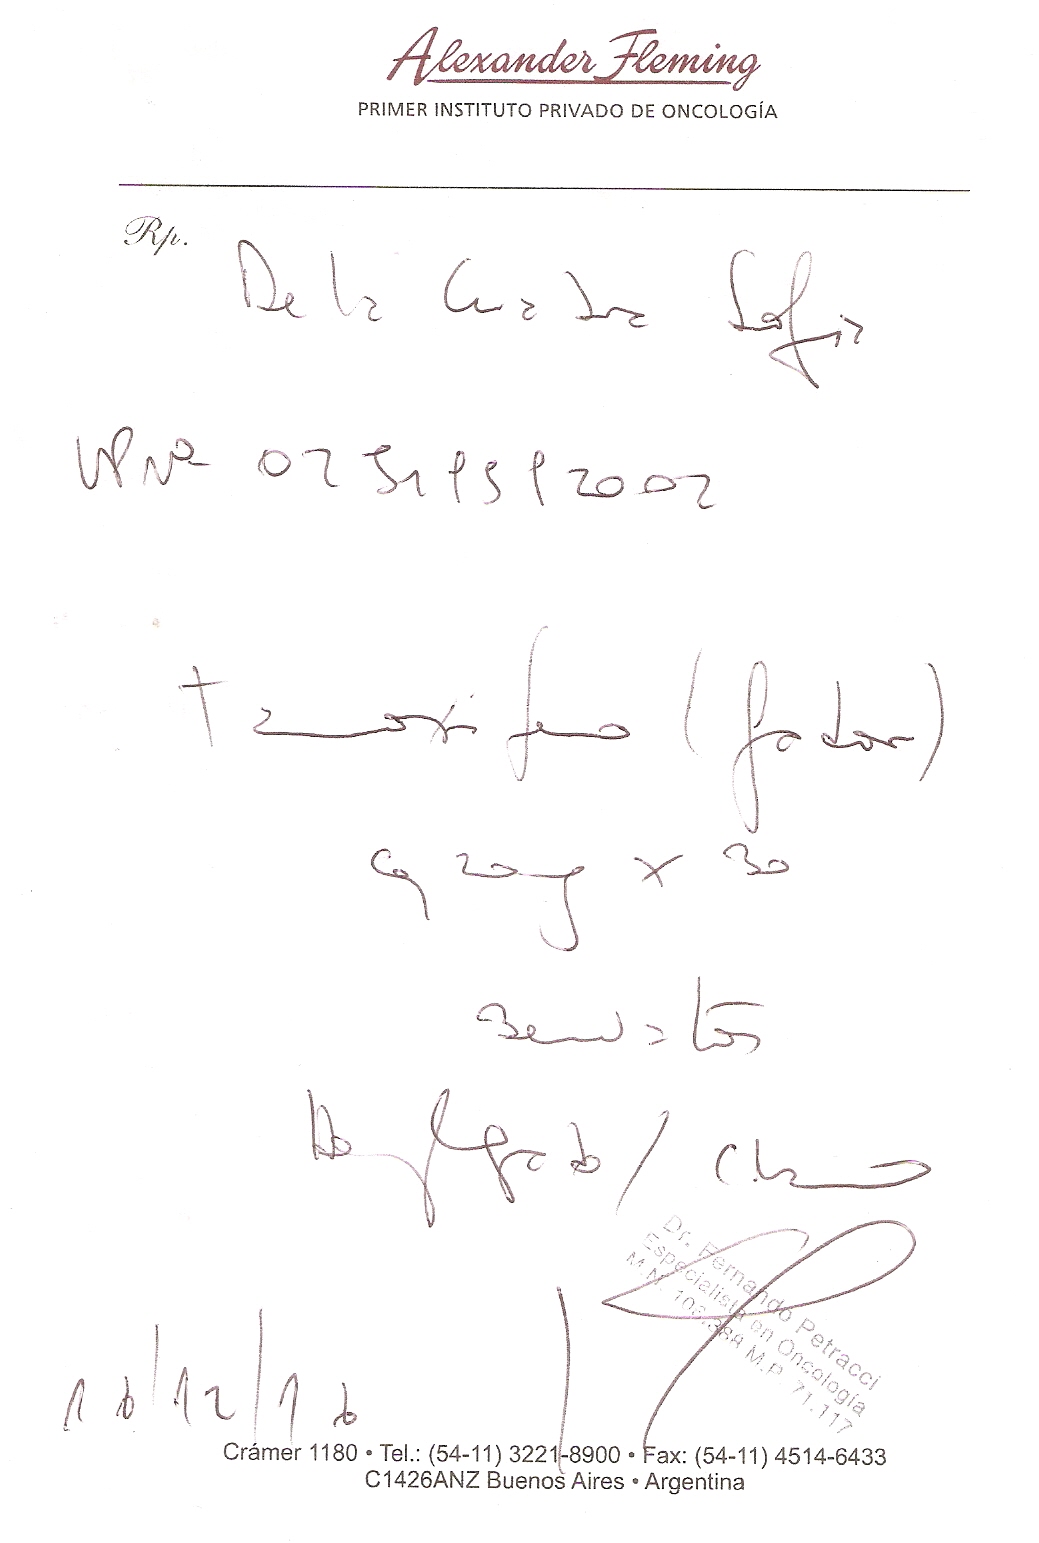 Alexander Fleming
PRIMER INSTITUTO PRIVADO DE ONCOLOGÍA
Rp.
De la Cuadra Sofia
Nº
Tamoxifeno (Gador)
20mg x 30
3
16/12/16
Dr. Fernando Petracci
Especialista en Oncología
M.N. M.P. 71.117
Crámer 1180 • Tel.: (54-11) 3221-8900 • Fax: (54-11) 4514-6433
C1426ANZ Buenos Aires • Argentina